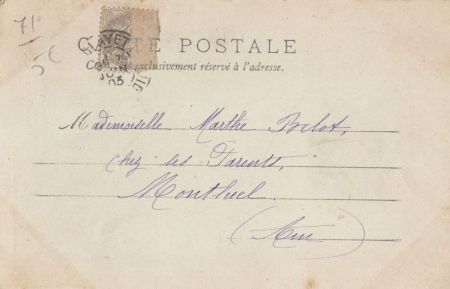 71
5c
CARTE POSTALE
exclusivement réservé à l'adresse.
JUIN
05
Mademoiselle Marthe Belot,
Chez ses Parents,
Montluel
(Ain)